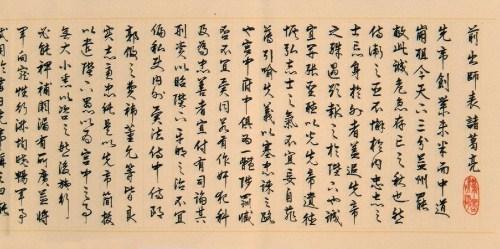 前出師表 諸葛亮
先帝創業未半而中道
崩殂今天下三分益州罷
敝此誠危急存亡之秋也然
侍衛之臣不懈於內忠志之
士忘身於外者蓋追先帝
之殊遇報之於陛下也誠
宜開張聖聽以光先帝遺德
恢弘志士之氣不宜妄自菲
薄引喻失義以塞忠諫之路
也宮中府中俱為一體陟罰臧
否不宜異同若有作奸犯科
及為忠善者宜付有司論其
刑賞以昭陛下平明之治不宜
偏私使內外異法侍中侍郎
郭攸之費禕董允等皆良
實志慮忠純是以先帝簡拔
以遺陛下愚以為宮中之事
無大小悉以咨之然後施行
必能裨補闕漏有所廣益將
軍向寵性行淑均曉暢軍事
試用於昔日先帝稱之曰